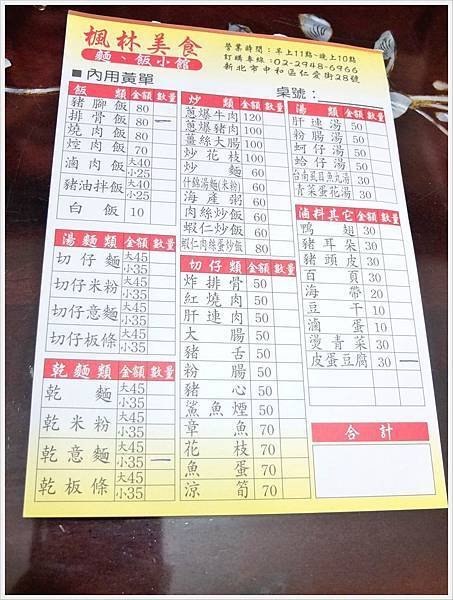 楓林美食
麵、飯小館
營業時間：早上11點~晚上10點
訂購專線：02-2948-6966
新北市中和區仁愛街28號
■內用黃單
桌號：
飯類 金額 數量
豬腳飯 80
排骨飯 80 一
燒肉飯 80
焢肉飯 70
滷肉飯 大40 小25
豬油拌飯 大40 小25
白飯 10
湯麵類 金額 數量
切仔麵 大45 小35
切仔米粉 大45 小35
切仔意麵 大45 小35
切仔板條 大45 小35
乾麵類 金額 數量
乾麵 大45 小35
乾米粉 大45 小35
乾意麵 大45 小35 一
乾板條 大45 小35
炒類 金額 數量
蔥爆牛肉 120
蔥爆豬肉 100
薑絲大腸 100
炒花枝 100
炒麵 60
什錦湯麵(米粉) 60
海產粥 60
肉絲炒飯 60
蝦仁炒飯 60
蝦仁肉絲蛋炒飯 80
切仔類 金額 數量
炸排骨 50
紅燒肉 50
肝連肉 50
大腸 50
豬舌 50
粉腸 50
豬心 50
鯊魚煙 50
章魚 70
花枝 70
魚蛋 70
涼筍 70
湯類 金額 數量
肝連湯 50
粉腸湯 50
蚵仔湯 50
蛤仔湯 50
台南虱目魚丸湯 30
青菜蛋花湯 30
滷料其它 金額 數量
鴨翅 30
豬耳朵 30
豬頭皮 30
百頁 30
海帶 20
豆干 10
滷蛋 10
燙青菜 30
皮蛋豆腐 30 一
合計